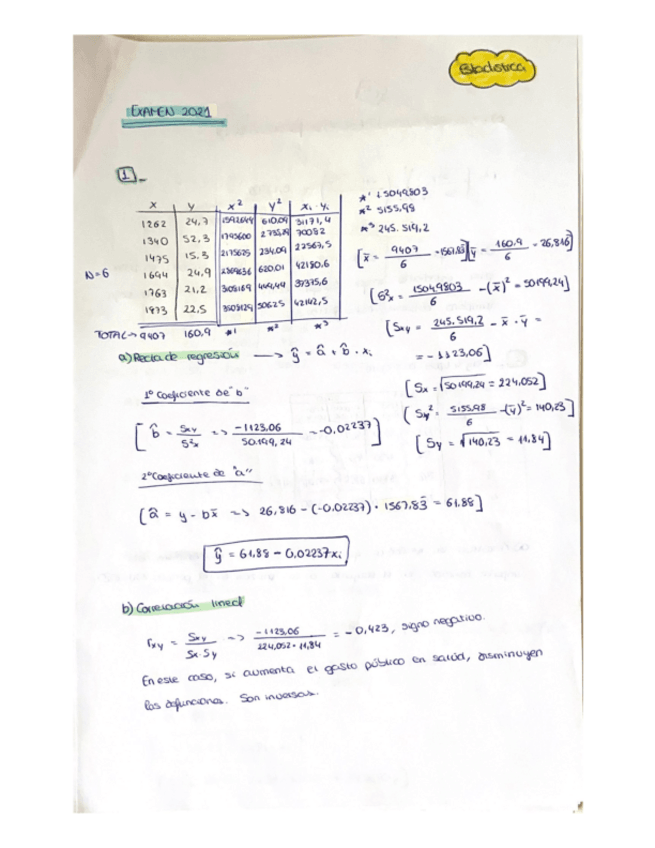 Estadística
EXAMEN 2021
1_
x y x² y² xi·yi
1262 24,7 1592644 610.09 31171,4
1340 52,3 1795600 2735,29 70082
1475 15.3 2175625 234.09 22567,5
1694 24,9 2869636 620,01 42180.6
1763 21,2 3108169 449,44 37375,6
1873 22,5 3508129 506.25 42142,5
N=6
TOTAL→ 9407 160.9 *1 *2 *3
*1 15049803
*2 5155,98
*3 245.519,2
[x̄ = 9407/6 = 1567,83] [ȳ = 160.9/6 = 26,816]
[S²x = 15049803/6 - (x̄)² = 50199,24]
[Sxy = 245.519,2/6 - x̄ · ȳ =
= -1123,06]
[Sx = √50199,24 = 224,052]
[Sy² = 5155,98/6 - (ȳ)² = 140,23]
[Sy = √140,23 = 11,84]
a) Recta de regresión → ŷ = â + b̂ · xi
1º Coeficiente de "b"
[b̂ = Sxy/S²x => -1123.06/50.199,24 = -0,02237]
2º Coeficiente de "a"
[â = y - bx̄ => 26,816 - (-0,02237) · 1567,83 = 61,88]
ŷ = 61,88 - 0,02237xi
b) Correlación lineal
rxy = Sxy/Sx·Sy => -1123,06/224,052·11,84 = -0,423, signo negativo.
En este caso, si aumenta el gasto público en salud, disminuyen
las defunciones. Son inversas.